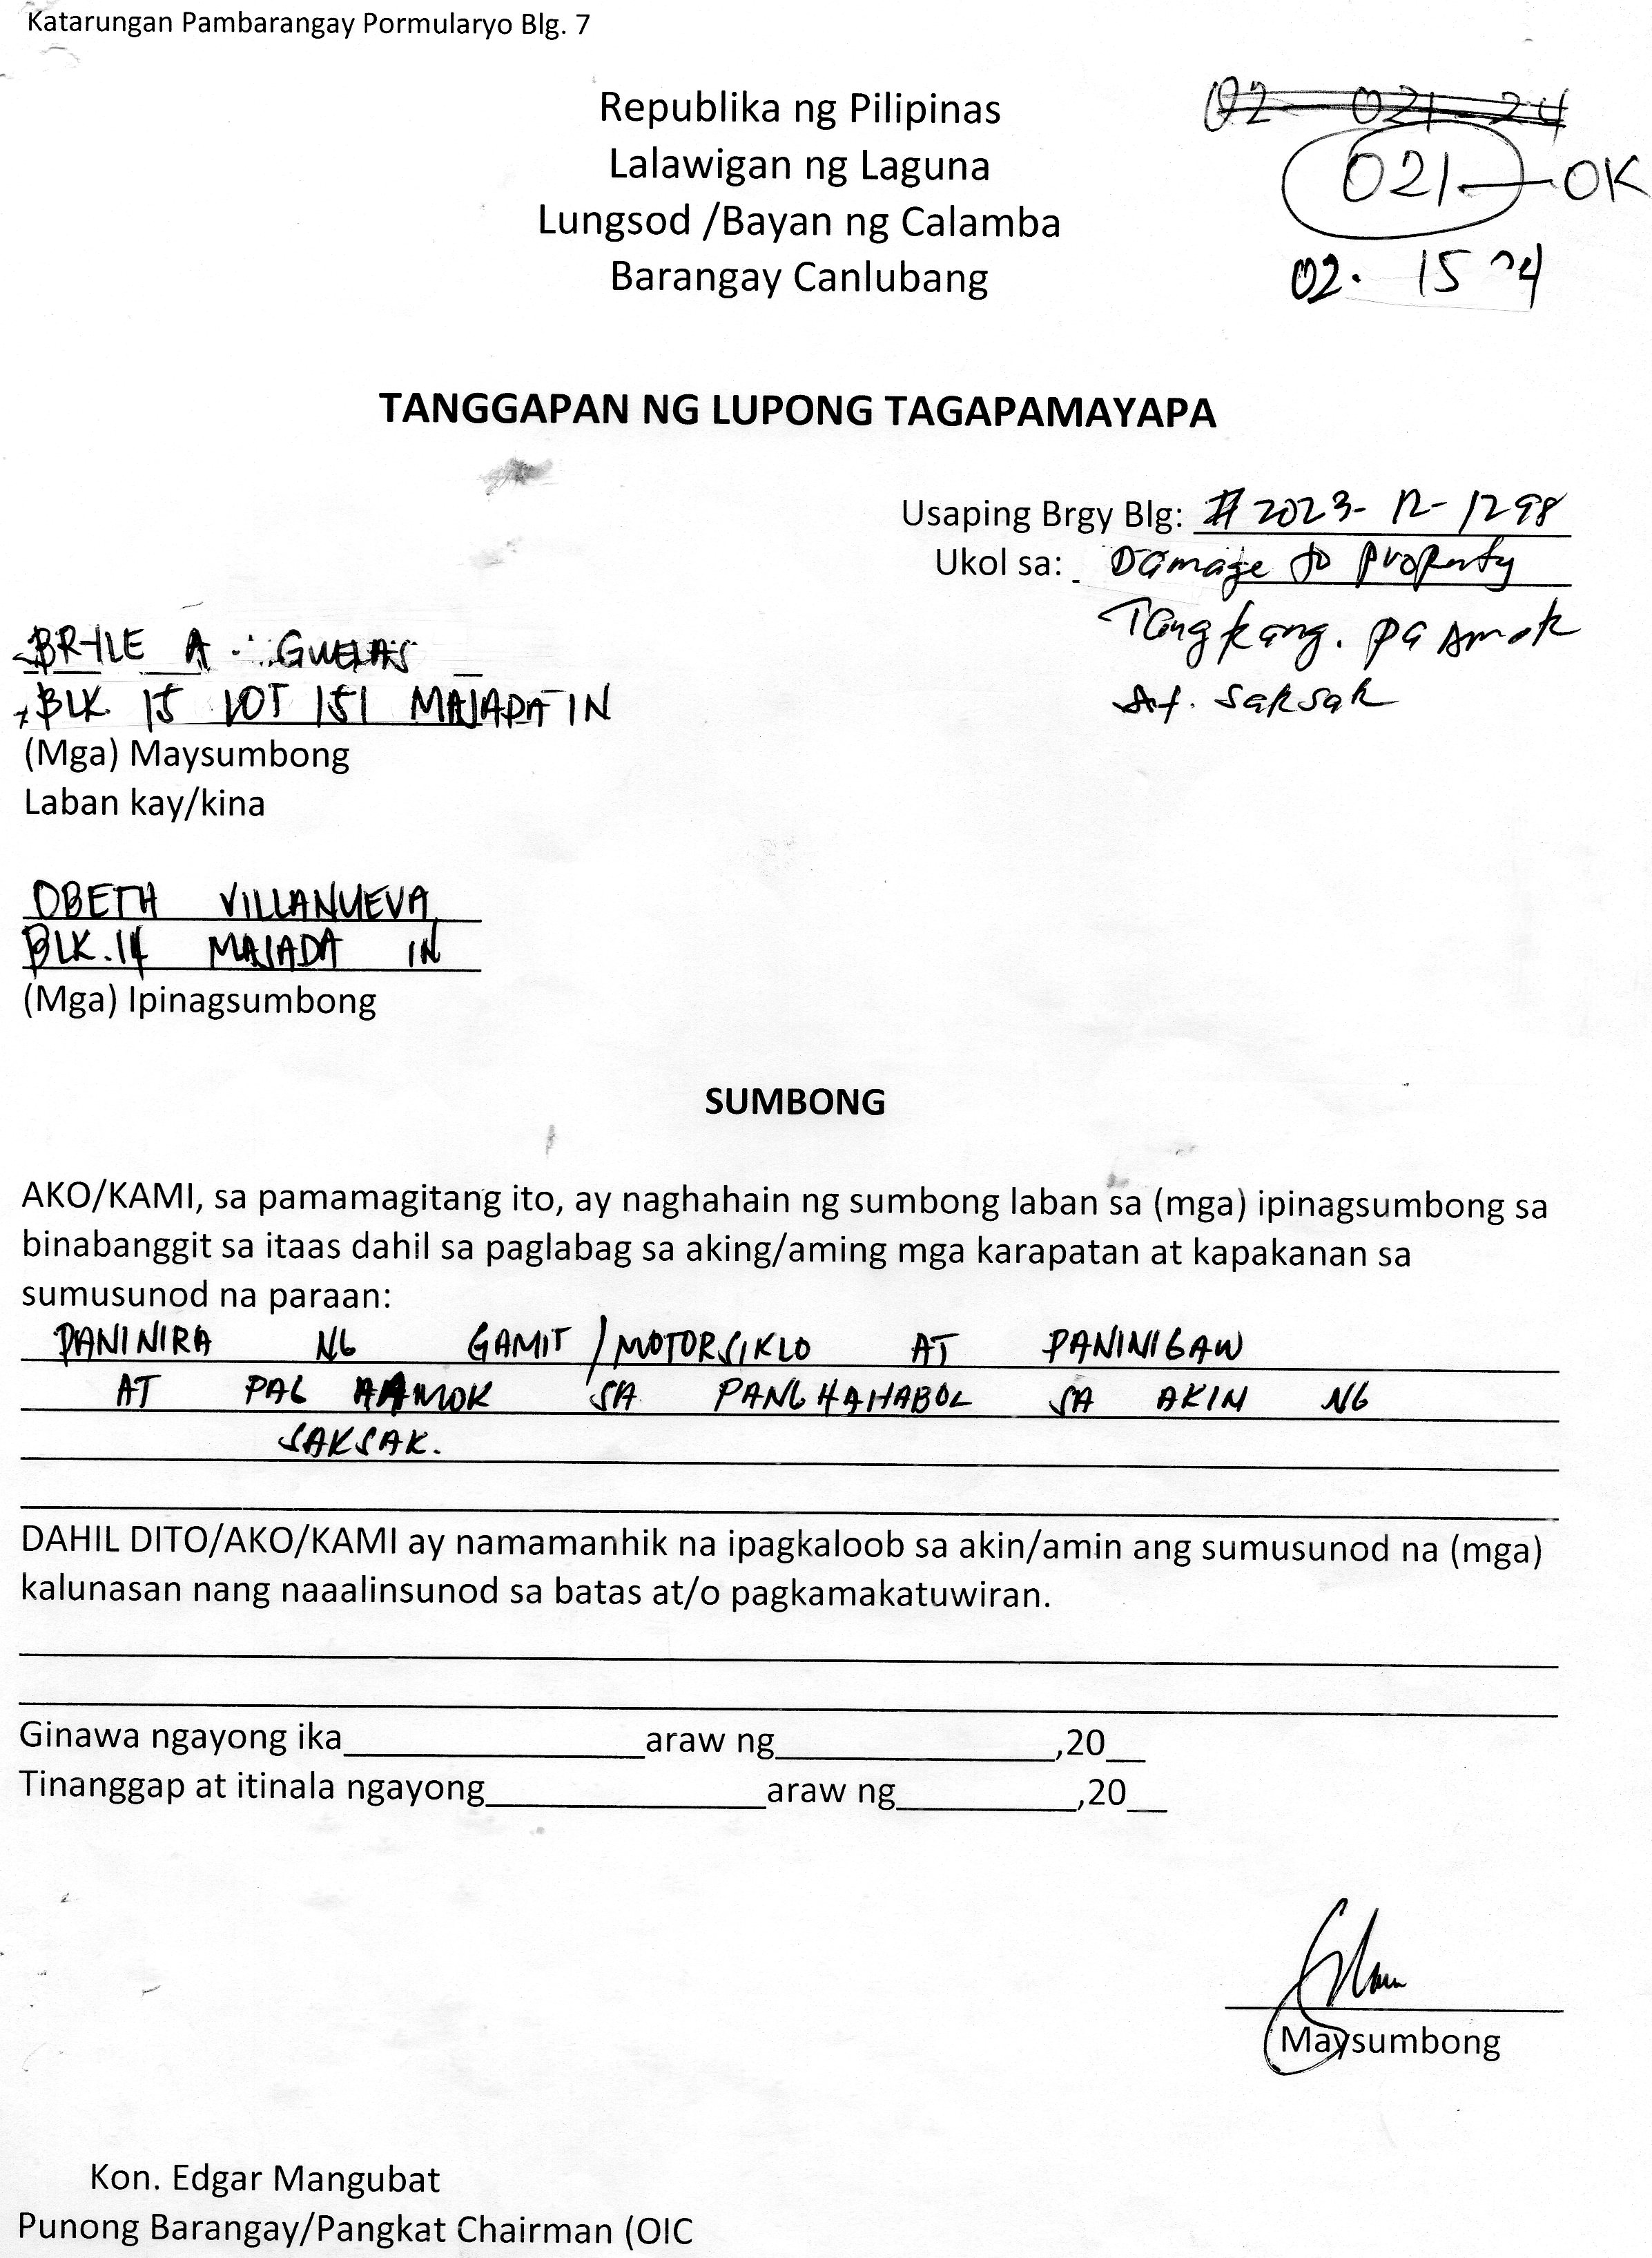 Katarungan Pambarangay Pormularyo Blg. 7
02 - 021 - 24
Republika ng Pilipinas
Lalawigan ng Laguna
021 - OK
Lungsod /Bayan ng Calamba
Barangay Canlubang
02. 15 24
TANGGAPAN NG LUPONG TAGAPAMAYAPA
Usaping Brgy Blg: # 2023-12-1298
Ukol sa: Damage to property
Tangkang. pa amok
At. saksak
A. GUELAS
BLK. 15 LOT 151 MAJADA IN
(Mga) Maysumbong
Laban kay/kina
OBETH VILLANUEVA
BLK.14 MAJADA IN
(Mga) Ipinagsumbong
SUMBONG
AKO/KAMI, sa pamamagitang ito, ay naghahain ng sumbong laban sa (mga) ipinagsumbong sa
binabanggit sa itaas dahil sa paglabag sa aking/aming mga karapatan at kapakanan sa
sumusunod na paraan:
PANINIRA NG GAMIT / MOTORSIKLO AT PANINIGAW
AT PAG AAMOK SA PANGHAHABOL SA AKIN NG
SAKSAK.
DAHIL DITO/AKO/KAMI ay namamanhik na ipagkaloob sa akin/amin ang sumusunod na (mga)
kalunasan nang naaalinsunod sa batas at/o pagkamakatuwiran.
Ginawa ngayong ika_______________araw ng______________,20__
Tinanggap at itinala ngayong______________araw ng_________,20__
Maysumbong
Kon. Edgar Mangubat
Punong Barangay/Pangkat Chairman (OIC